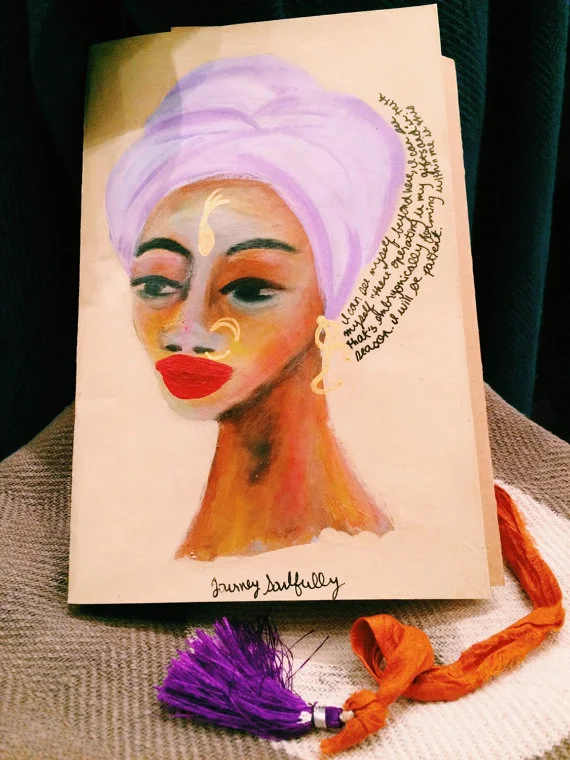 i can see myself beyond here, i can
myself there operating in my
that's embryonically forming within me it
season. i will be patient.
Journey Soulfully